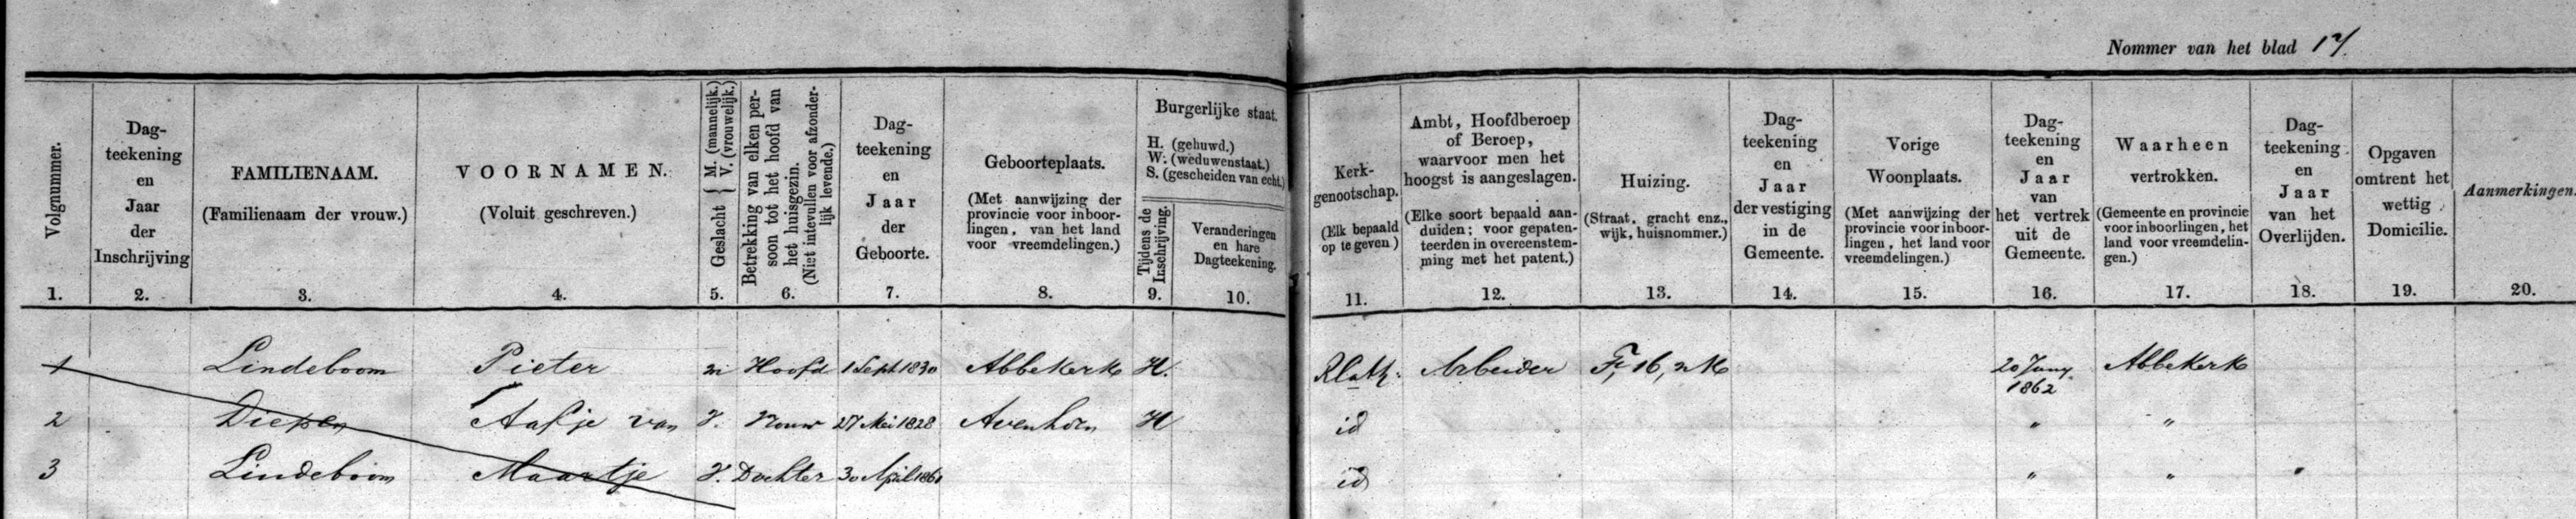 Nommer van het blad 17.
Volgnummer.
1.
Dag-
teekening
en
Jaar
der
Inschrijving
2.
FAMILIENAAM.
(Familienaam der vrouw.)
3.
VOORNAMEN.
(Voluit geschreven.)
4.
Geslacht { M. (mannelijk.)
V. (vrouwelijk.)
5.
Betrekking van elken per-
soon tot het hoofd van
het huisgezin.
(Niet intevullen voor afzonder-
lijk levende.)
6.
Dag-
teekening
en
Jaar
der
Geboorte.
7.
Geboorteplaats.
(Met aanwijzing der
provincie voor inboor-
lingen, van het land
voor vreemdelingen.)
8.
Burgerlijke staat.
H. (gehuwd.)
W. (weduwenstaat.)
S. (gescheiden van echt.)
Tijdens de
Inschrijving.
9.
Veranderingen
en hare
Dagteekening.
10.
Kerk-
genootschap.
(Elk bepaald
op te geven)
11.
Ambt, Hoofdberoep
of Beroep,
waarvoor men het
hoogst is aangeslagen.
(Elke soort bepaald aan-
duiden; voor gepaten-
teerden in overeenstem-
ming met het patent.)
12.
Huizing.
(Straat, gracht enz.,
wijk, huisnommer.)
13.
Dag-
teekening
en
Jaar
der vestiging
in de
Gemeente.
14.
Vorige
Woonplaats.
(Met aanwijzing der
provincie voor inboor-
lingen, het land voor
vreemdelingen.)
15.
Dag-
teekening
en
Jaar
van
het vertrek
uit de
Gemeente.
16.
Waarheen
vertrokken.
(Gemeente en provincie
voor inboorlingen, het
land voor vreemdelin-
gen.)
17.
Dag-
teekening
en
Jaar
van het
Overlijden.
18.
Opgaven
omtrent het
wettig
Domicilie.
19.
Aanmerkingen.
20.
1 Lindeboom Pieter m Hoofd 1 Sept 1830 Abbekerk H. R Kath: Arbeider F, 16, 20 Juny Abbekerk
1862
2 Diepen Aafje van V. Vrouw 27 Mei 1828 Avenhorn H id " "
3 Lindeboom Maartje V. Dochter 30 April 1861 id " "